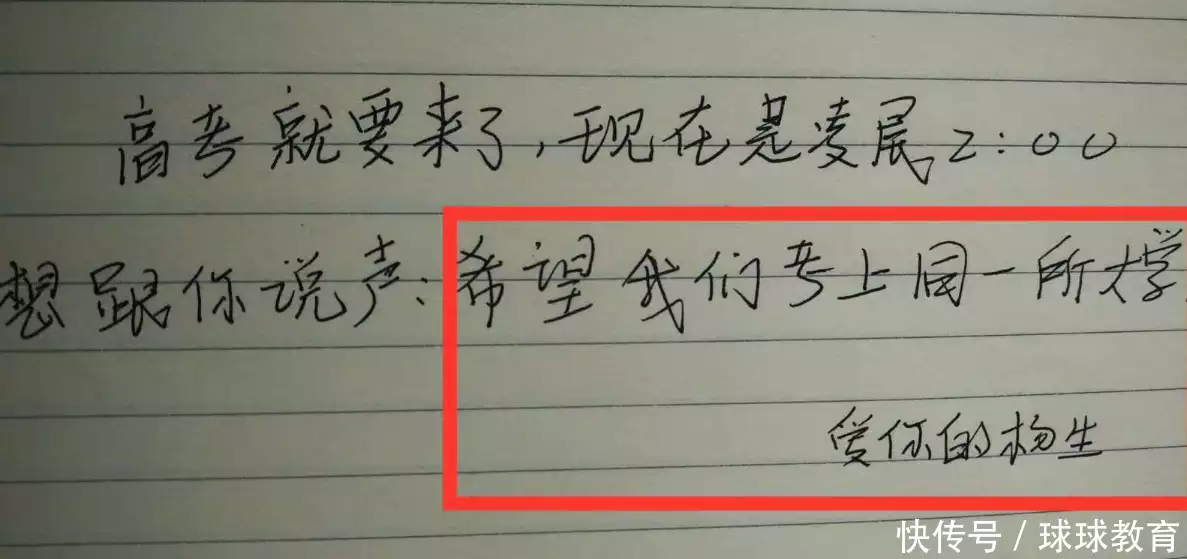 高考就要来了,现在是凌晨2:00
想跟你说声:希望我们考上同一所大学
爱你的杨生
快传号 / 球球教育